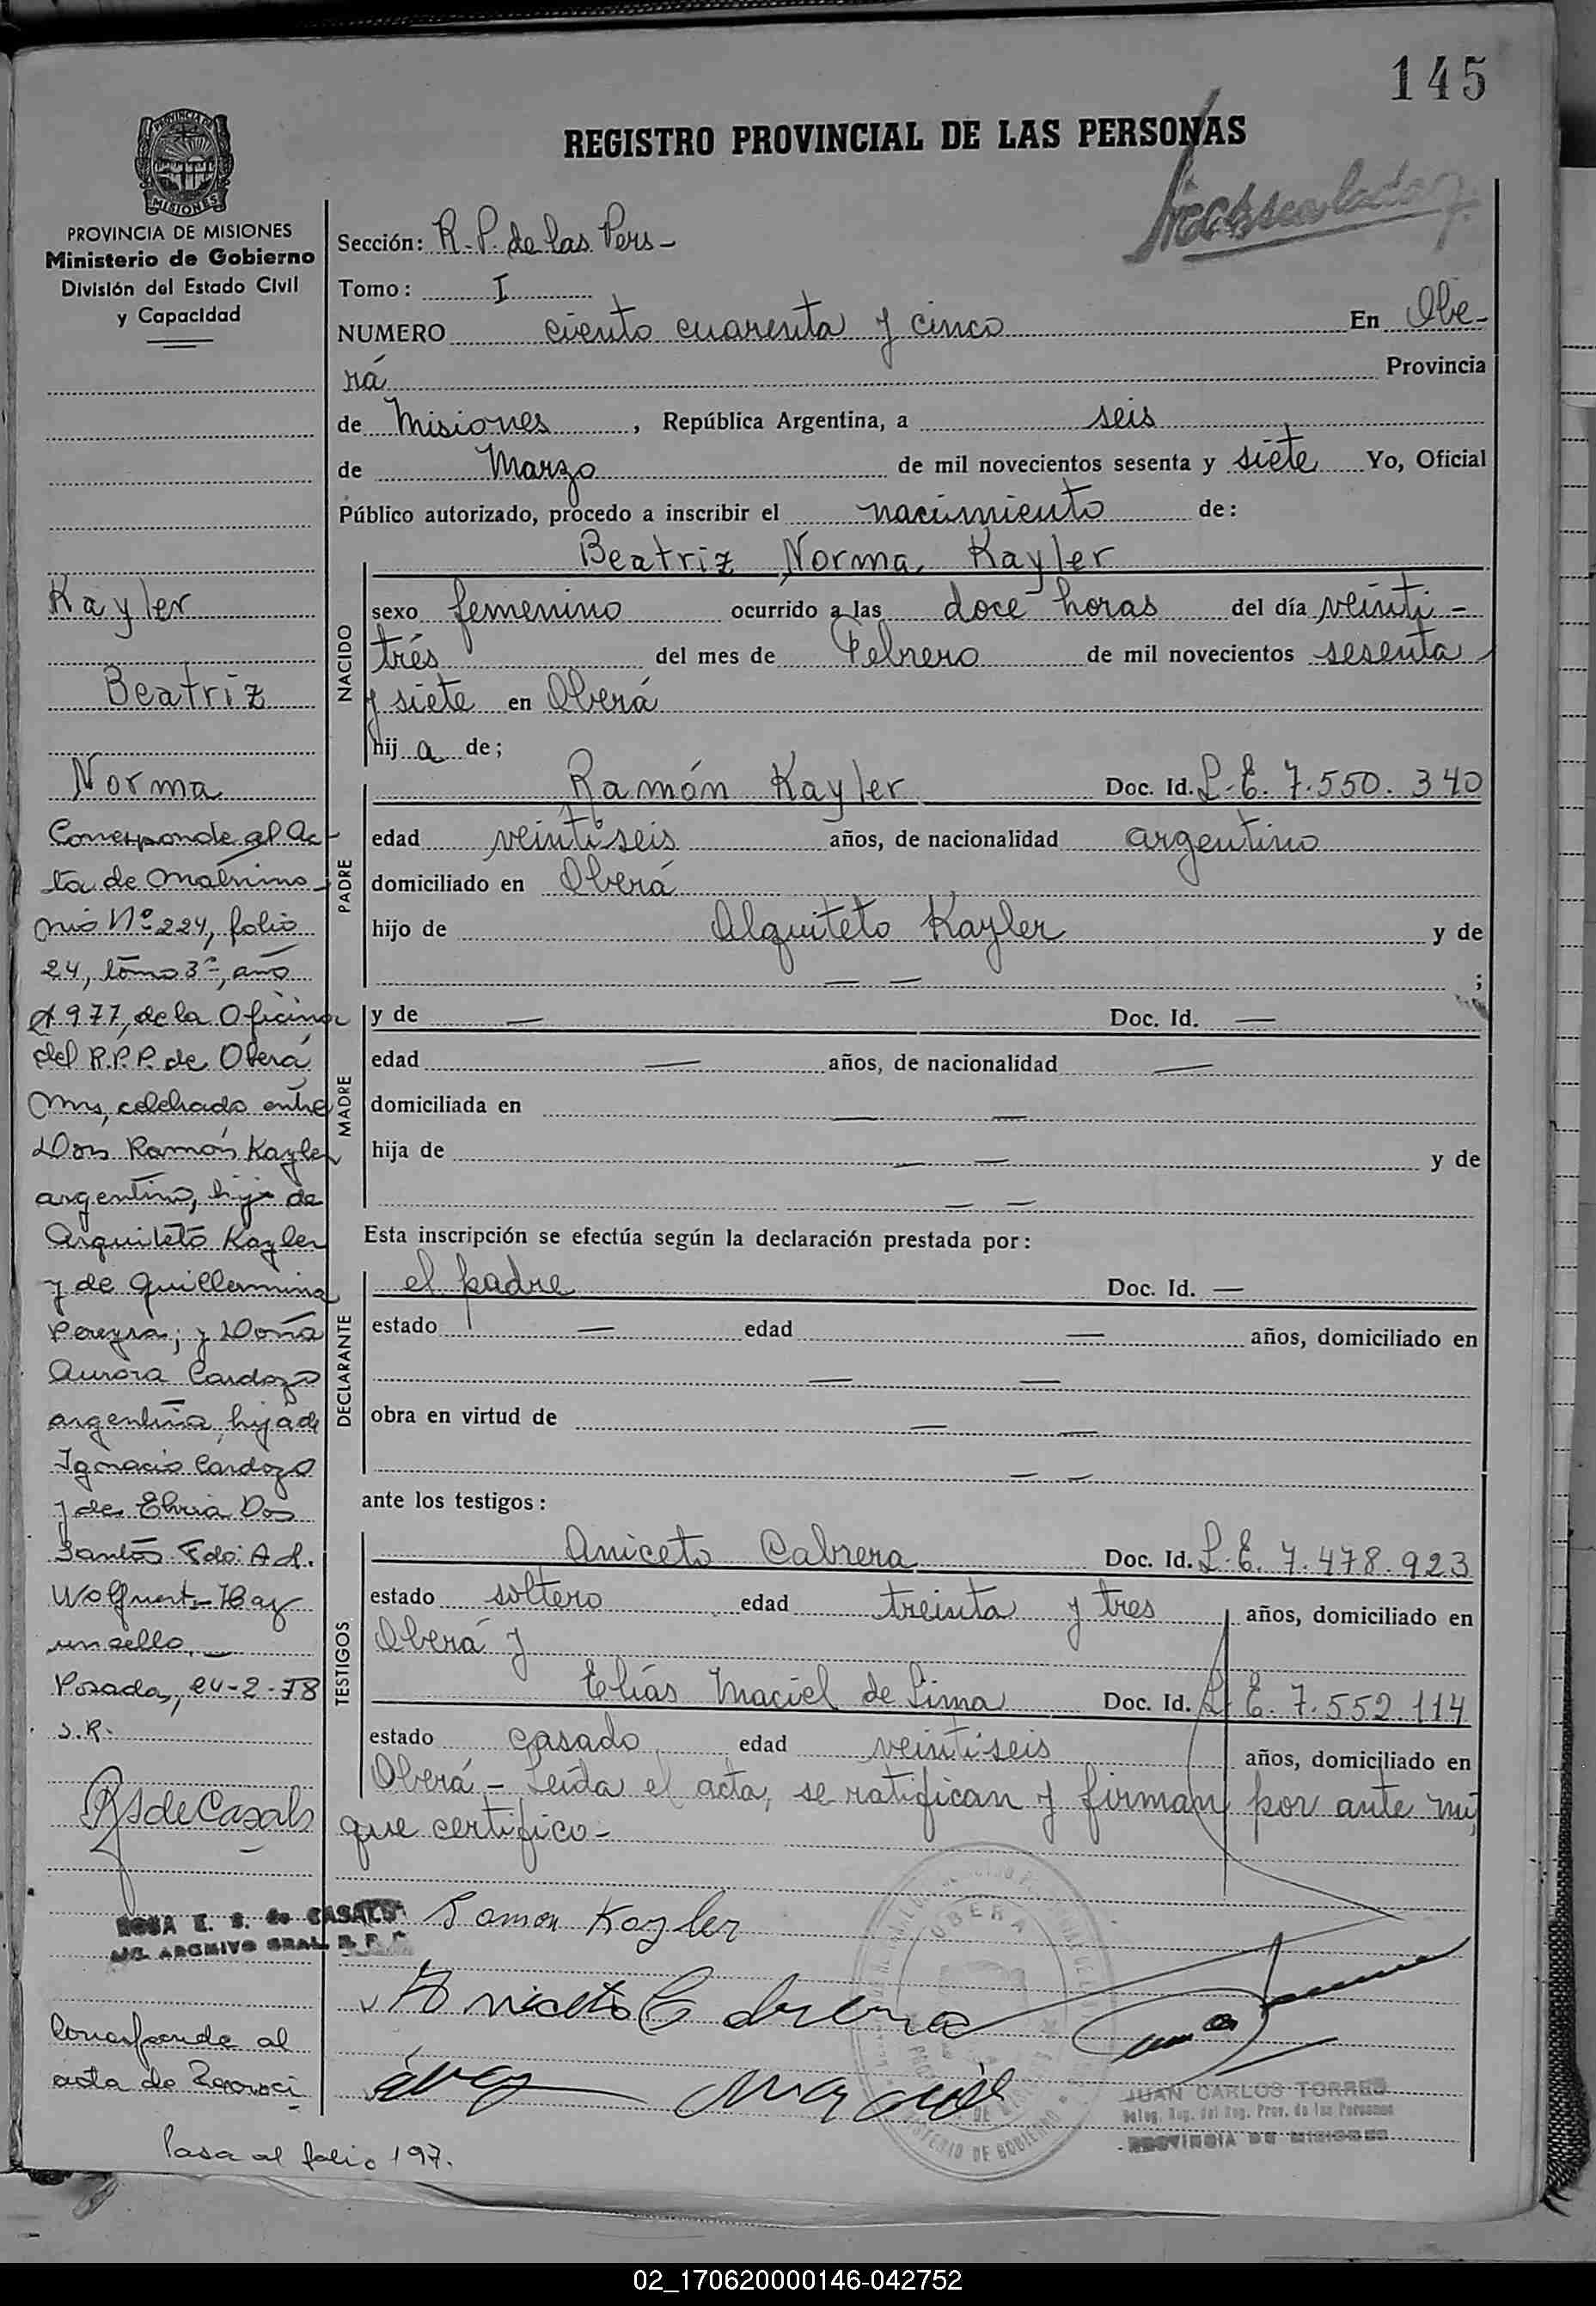 145
REGISTRO PROVINCIAL DE LAS PERSONAS
PROVINCIA DE MISIONES
Ministerio de Gobierno
División del Estado Civil
y Capacidad
Sección: R. P. de las Pers-
Tomo: I
NUMERO ciento cuarenta y cinco En Obe-
rá Provincia
de Misiones, República Argentina, a seis
de Marzo de mil novecientos sesenta y siete Yo, Oficial
Público autorizado, procedo a inscribir el nacimiento de:
Beatriz Norma Kayler
NACIDO
sexo femenino ocurrido a las doce horas del día veinti-
trés del mes de Febrero de mil novecientos sesenta
y siete en Oberá
hij a de;
PADRE
Ramón Kayler Doc. Id. L. E. 7.550.340
edad veintiseis años, de nacionalidad argentino
domiciliado en Oberá
hijo de Alquiteto Kayler y de
— — ;
MADRE
y de — Doc. Id. —
edad — años, de nacionalidad —
domiciliada en — —
hija de — — y de
— —
Esta inscripción se efectúa según la declaración prestada por:
DECLARANTE
el padre Doc. Id. —
estado — edad — años, domiciliado en
— —
obra en virtud de — —
— —
ante los testigos:
TESTIGOS
Aniceto Cabrera Doc. Id. L. E. 7.478.923
estado soltero edad treinta y tres años, domiciliado en
Oberá y
Elías Maciel de Lima Doc. Id. L. E. 7.552.114
estado casado edad veintiseis años, domiciliado en
Oberá - Leída el acta, se ratifican y firman por ante mí
que certifico-
Ramon Kayler
Aniceto Cabrera
Maciel
OBERA
JUAN CARLOS TORRES
Deleg. Reg. del Reg. Prov. de las Personas
PROVINCIA DE MISIONES
Kayler
Beatriz
Norma
Corresponde al Ac-
ta de Matrimo-
nio Nº 224, folio
24, tomo 3º, año
1977, de la Oficina
del R.P.P. de Oberá
Mnes, celebrado entre
Don Ramón Kayler
argentino, hijo de
Arquiteto Kayler
y de Guillermina
Pereyra; y Doña
Aurora Cardozo
argentina, hija de
Ignacio Cardozo
y de Elvira Dos
Santos Fdo: A. H.
Wolfuart - Hay
un sello.—
Posadas, 24-2-78
S.R.
RSdeCasals
ROSA E. S. de CASALS
ARCHIVO GRAL. R. P. P.
Corresponde al
acta de Reconoci
Pasa al folio 197.
02_170620000146-042752